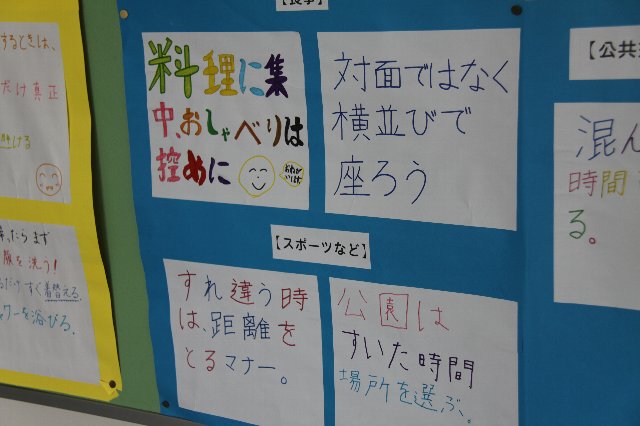 するときは、
だけ真正
避ける
ったらまず
顔を洗う!
るだけすぐ着替える
ャワーを浴びる。
【食事】
料理に集
中、おしゃべりは
控めに
対面ではなく
横並びで
座ろう
【スポーツなど】
すれ違う時
は、距離を
とるマナー。
公園は
すいた時間
場所を選ぶ。
【公共
混ん
時間
る。